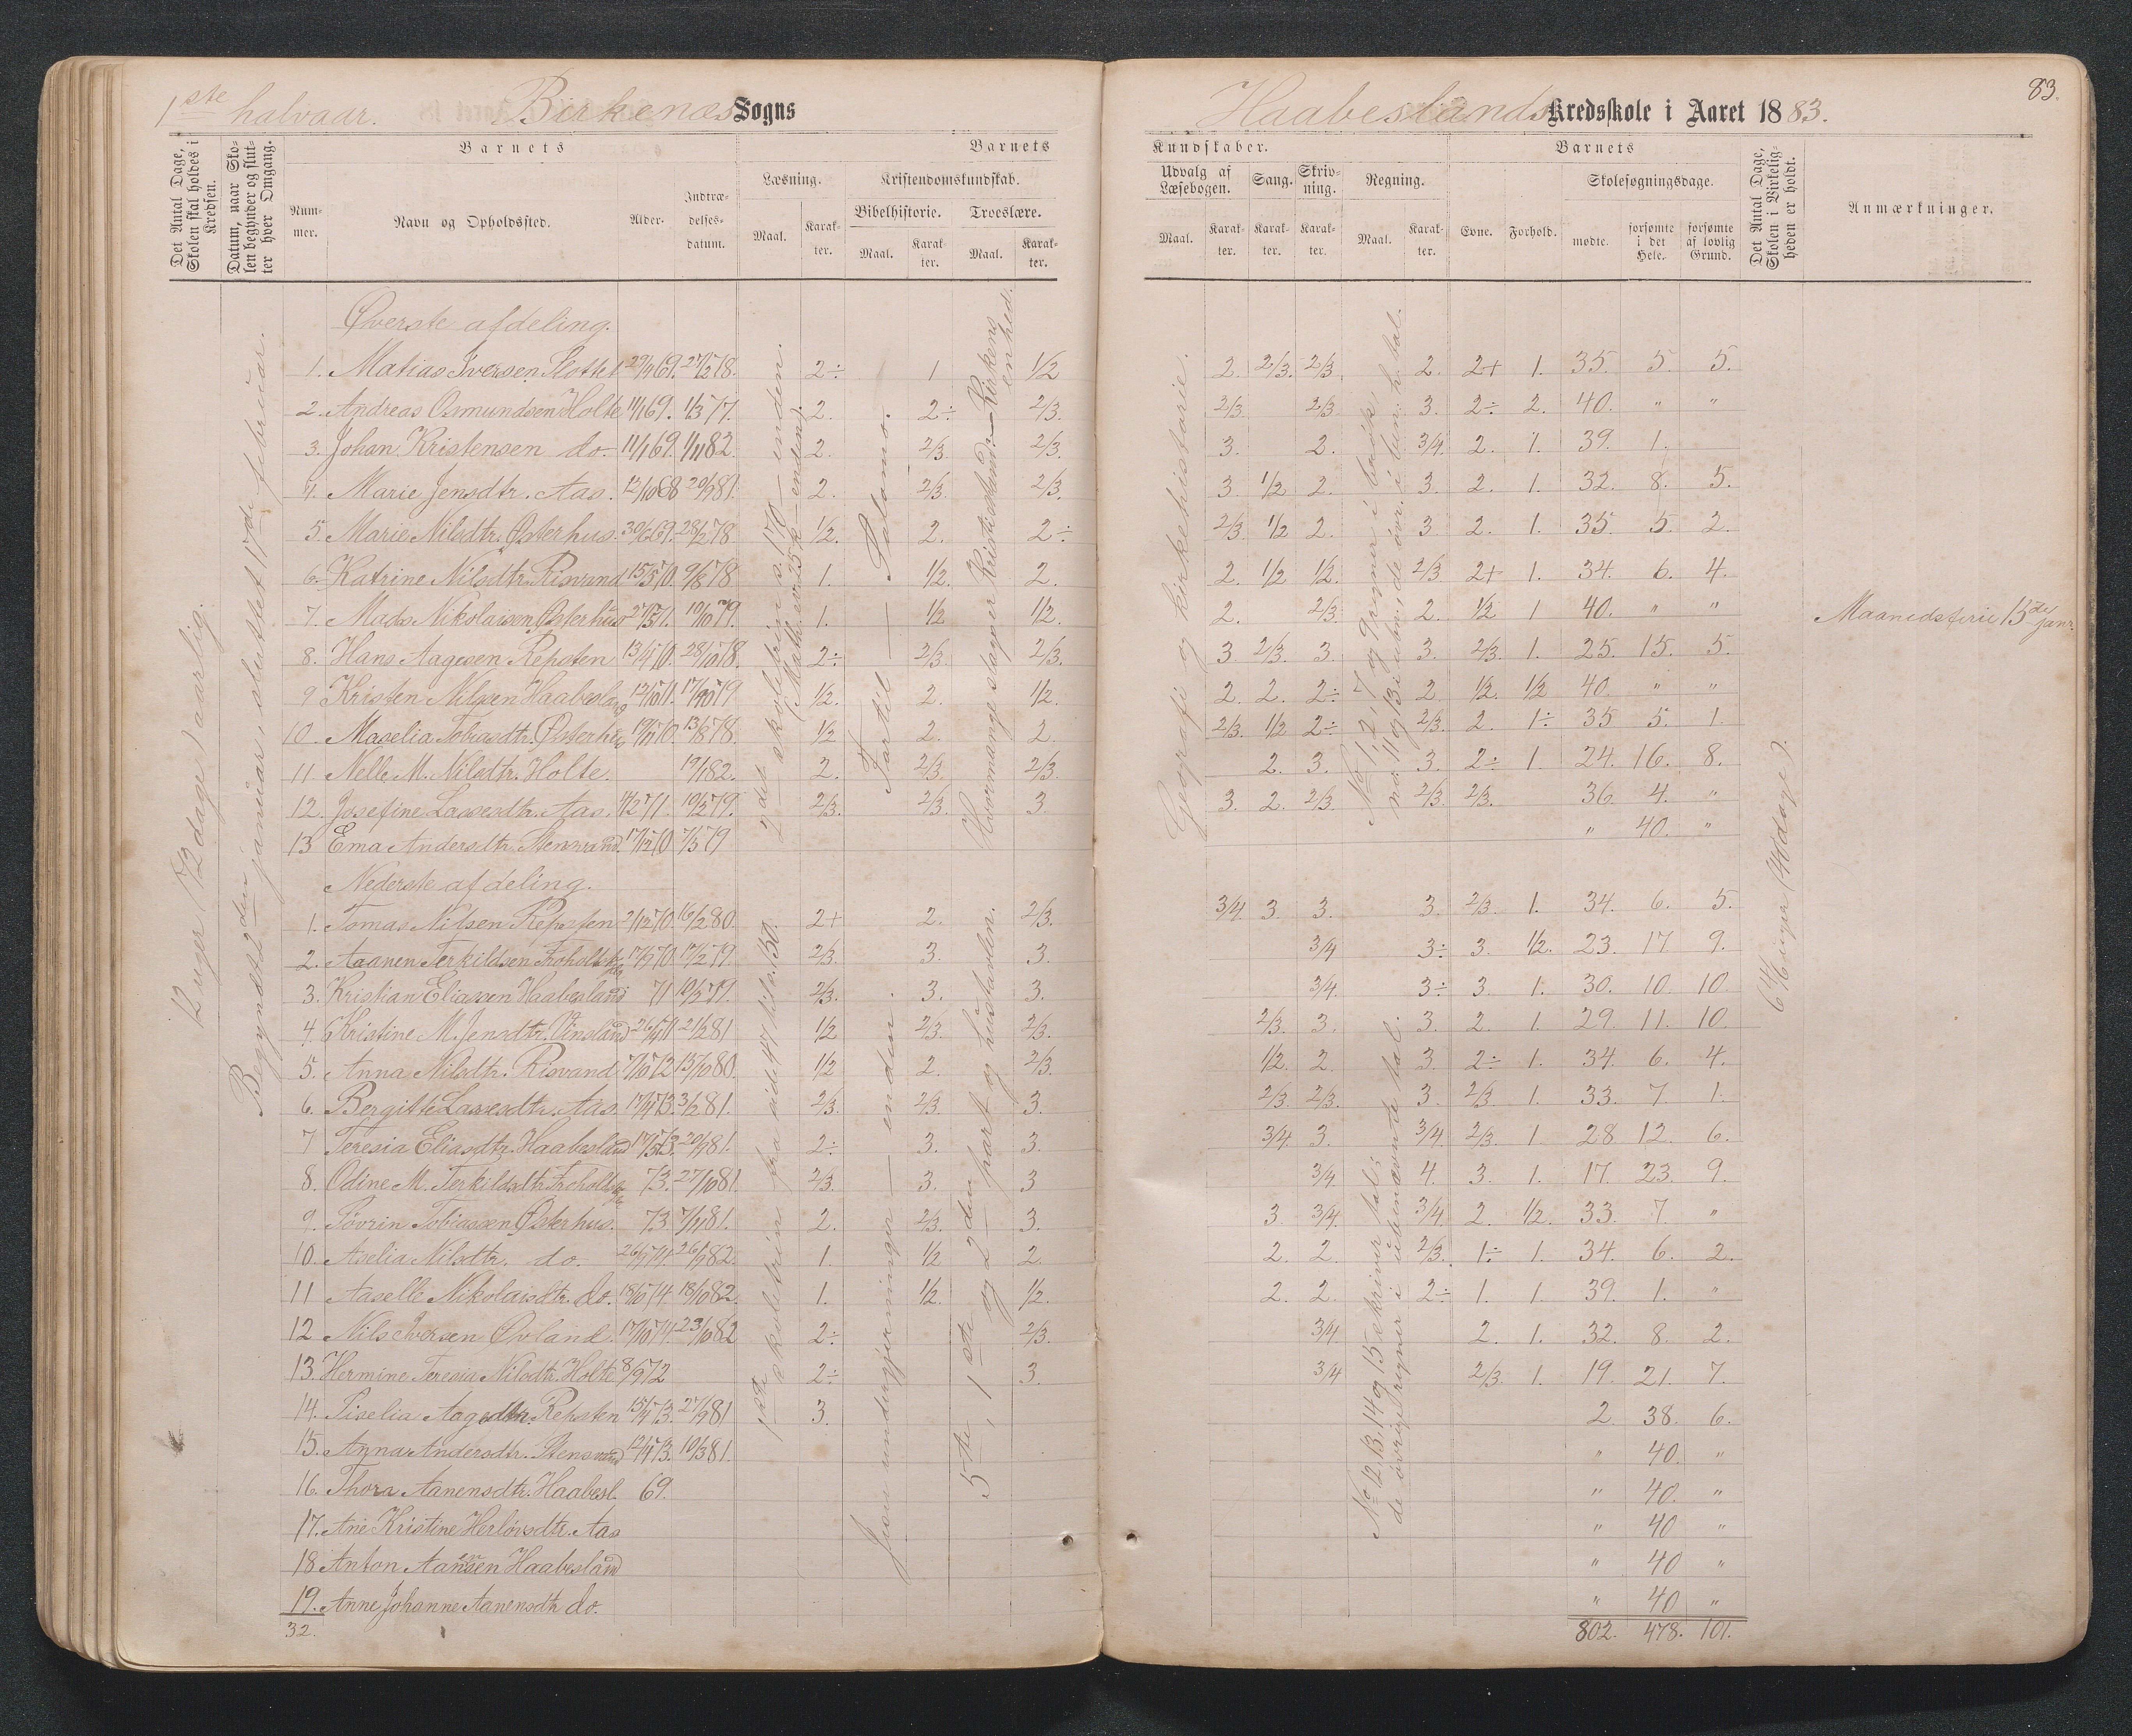 1ste halvaar. Birkenæs Sogns
Haabeslands Kredsskole i Aaret 1883.
83.
Det Antal Dage, Skolen skal holdes i Kredsen.
Datum, naar Skolen begynder og slutter hver Omgang.
Barnets
Nummer.
Navn og Opholdssted.
Alder.
Indtrædelsesdatum.
Læsning.
Maal.
Karakter.
Barnets
Kristendomskundskab.
Bibelhistorie.
Maal.
Karakter.
Troeslære.
Maal.
Karakter.
Kundskaber.
Udvalg af Læsebogen.
Maal.
Karakter.
Sang.
Karakter.
Skrivning.
Karakter.
Regning.
Maal.
Karakter.
Barnets
Evne.
Forhold.
Skolesøgningsdage.
mødte.
forsømte i det Hele.
forsømte af lovlig Grund.
Det Antal Dage, Skolen i Virkeligheden er holdt.
Anmærkninger.
12 uger (72 dage) aarlig.
Begyndt 2den januar, sluttet 17de februar.
Øverste afdeling.
2det skoletrin s. 170 — enden.
(Math. ev. 25 k — enden).
Fortil — Salomo.
Hvormange slags er Kristi stand — Kirkens enhed.
Geografi og kirkehistorie.
No 1, 2, 7 og 9 regner i brøk,
no. 11 og 13 i ubn., de øvr. i ben. h. tal.
1. Matias Iversen Slottet 29/4 69. 27/2 78. 2÷ 1 1/2 2. 2/3. 2/3 2. 2+ 1. 35. 5. 5.
2. Andreas Osmundsen Holte 11/1 69. 1/3 77. 2. 2÷ 2/3. 2/3 2/3. 3. 2÷ 2. 40. " "
3. Johan Kristensen do. 11/1 69. 1/11 82. 2. 2/3 2/3. 3. 2. 3/4. 2. 1. 39. 1.
4. Marie Jensdtr. Aas. 12/10 68 20/9 81. 2. 2/3. 2/3. 3. 1/2 2. 3. 2. 1. 32. 8. 5.
5. Marie Nilsdtr. Østerhus. 30/6 69. 28/2 78 1/2. 2. 2÷ 2/3 1/2 2. 3 2. 1. 35. 5. 2.
6. Katrine Nilsdtr. Risvand 15/5 70. 9/8 78 1. 1/2. 2. 2. 1/2 1/2. 2/3 2+ 1. 34. 6. 4.
7. Mads Nikolaisen Østerhus 27/5 71. 10/10 79. 1. 1/2 1/2. 2. 2/3. 2. 1/2 1 40. " "
Maanedsferie 15de janr.
8. Hans Aagesen Repsten 13/4 70. 28/10 78. 2÷ 2/3. 2/3. 3. 2/3. 3. 3. 2/3. 1. 25. 15. 5.
9 Kristen Nilsen Haabesland 13/10 71. 17/10 79 1/2. 2. 1/2. 2. 2. 2÷ 2 1/2. 1/2 40. " "
10. Maselia Tobiasdtr. Østerhus 19/11 70. 13/8 78. 1/2 2. 2. 2/3. 1/2 2÷ 2/3. 2. 1÷ 35 5. 1.
11 Nelle M. Nilsdtr. Holte. 19/1 82. 2. 2/3 2/3. 2. 3. 3. 2÷ 1. 24. 16. 8.
12. Josefine Lassesdtr. Aas. 4/2 71. 10/3 79. 2/3. 2/3. 3. 3. 2. 2/3 2/3 2/3. 36. 4. "
13 Ema Andersdtr. Stensvand. 17/12 70 7/3 79 " 40. "
Nederste afdeling.
1ste skoletrin fra side 47 til s. 150.
Jesu undergjerninger — enden.
5te, 1ste og 2den part og hustavlen.
No 12, 13, 14 og 15 skriver tal;
de øvrige regner i ubenævnte tal.
6 4/6 uger (40 dage).
1. Tomas Nilsen Repsten 2/12 70. 16/2 80. 2+ 2. 2/3. 3/4. 3. 3. 3. 2/3. 1. 34. 6. 5.
2. Aanen Terkildsen 17/9 70. 17/2 79. 2/3. 3. 3. 3/4 3÷ 3. 1/2. 23. 17. 9.
3. Kristian Eliassen Haabesland 71 10/3 79. 2/3. 3. 3. 3/4. 3÷ 3. 1. 30. 10. 10.
4. Kristine M. Jensdtr. 26/4 71 21/2 81 1/2 2/3. 2/3. 2/3. 3. 3. 2. 1. 29. 11. 10.
5. Anna Nilsdtr. Risvand 7/10 72 13/10 80. 1/2 2. 2/3. 1/2. 2. 3. 2÷ 1. 34. 6. 4.
6. Bergitte Lassesdtr. Aas. 17/4 73. 3/2 81. 2/3. 2/3. 3. 2/3. 2/3. 3. 2/3 1. 33. 7. 1.
7 Teresia Eliasdtr. Haabesland 17/5 73. 20/9 81. 2÷ 3. 3. 3/4. 3. 3/4 2/3. 1. 28 12. 6.
8. Odine M. Terkildsdtr. 73. 27/10 81. 2/3. 3. 3 3/4. 4. 3. 1. 17. 23. 9.
9. Søvrin Tobiassen Østerhus. 73 7/11 81. 2. 2/3. 3. 3. 3/4. 3/4. 2. 1/2. 33. 7. "
10. Aselia Nilsdtr. do. 26/7 74. 26/9 82. 1. 1/2 2 2. 2. 2/3. 1÷ 1. 34. 6. 2.
11 Aaselle Nikolaisdtr. do. 18/6 74 18/10 82. 1. 1/2. 1/2. 2. 2. 2÷ 1. 1. 39. 1. "
12 Nils Iversen Øvland. 17/10 74. 23/10 82 2÷ 2/3. 3/4 2. 1. 32. 8. 2.
13. Hermine Teresia Nilsdtr. Holte 8/9 72 2÷ 3. 3/4 2/3. 1. 19. 21. 7.
14. Siselia Aagesdtr. Repsten 15/4 73. 27/9 81 3. 2. 38. 6.
15. Anna Andersdtr. Stensvand 12/4 73. 10/3 81. " 40. "
16. Thora Aanensdtr. Haabesl. 69. " 40. "
17. Ane Kristine Herlovsdtr. Aas " 40 "
18 Anton Aanensen Haabesland " 40 "
19. Anne Johanne Aanensdtr do. " 40 "
32. 802. 478. 101.